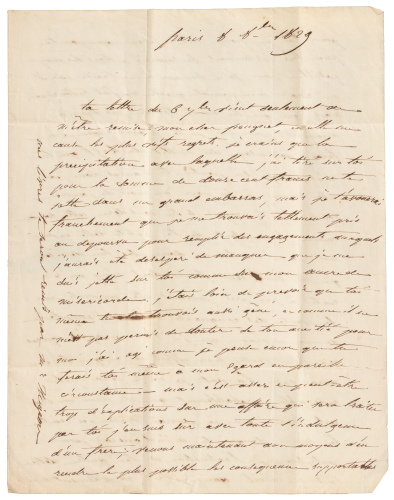 paris 8 8bre 1829
ta lettre du 6 vient seulement de
m'être remise mon cher elle me
cause les plus vifs regrets, je crains que la
précipitation avec laquelle j'ai tiré sur toi
pour la somme de douze cent francs ne te
jette dans un grand embarras, mais je t'avouerai
franchement que je me trouvais tellement pris
au dépourvu pour remplir des engagements auxquels
j'aurais été désespéré de manquer que je me
suis jetté sur toi comme sur mon ancre de
miséricorde, j'étais loin de penser que toi
même te trouvais aussi gêné, et comme il ne
m'est pas permis de douter de ton amitié pour
moi j'ai agi comme je pense que tu
ferais toi même à mon égard en pareille
circonstance — mais c'est assez et peut être
trop d'explications sur une affaire qui sera traitée
par toi j'en suis sûr avec toute l'indulgence
d'un frère, venons maintenant aux moyens d'en
rendre le plus possible les conséquences supportables